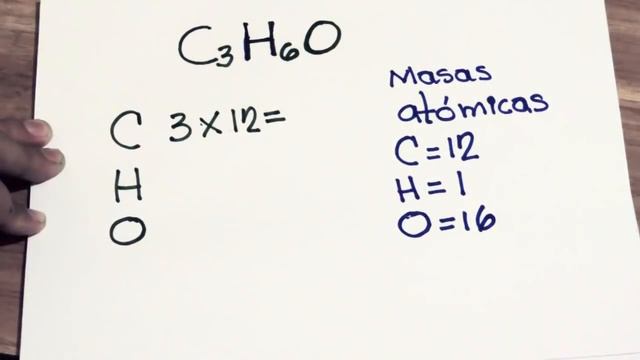 C₃H₆O
C 3×12=
H
O
Masas
atómicas
C=12
H=1
O=16